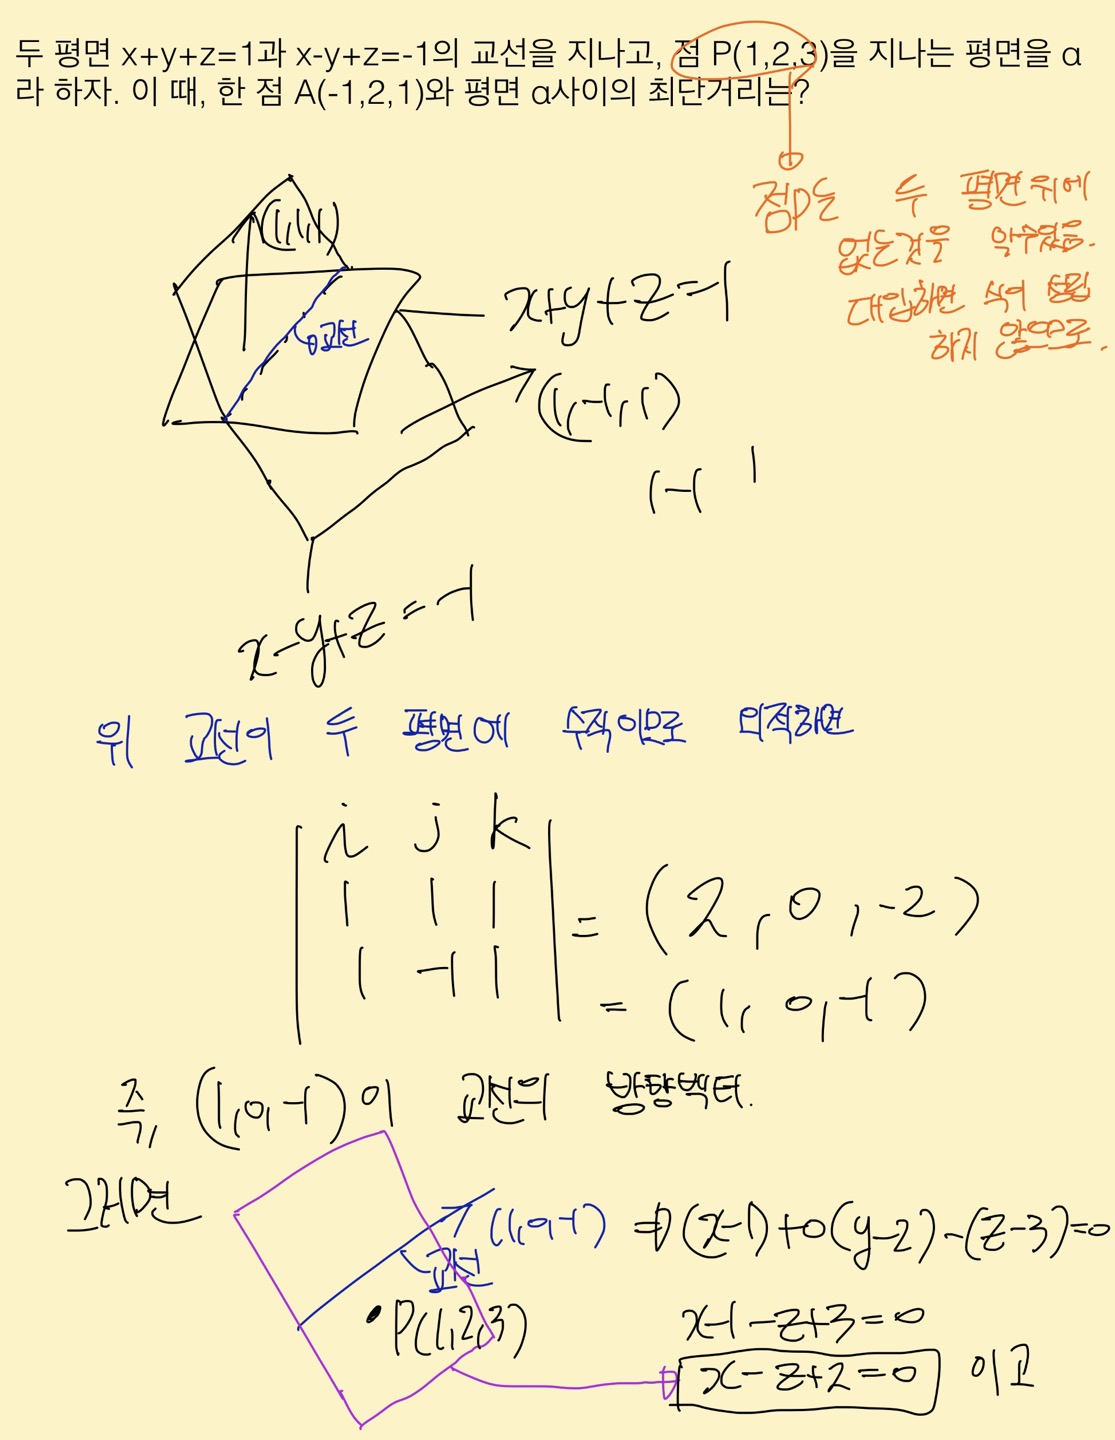 두 평면 x+y+z=1과 x-y+z=-1의 교선을 지나고, 점 P(1,2,3)을 지나는 평면을 α
라 하자. 이 때, 한 점 A(-1,2,1)와 평면 α사이의 최단거리는?
점P는 두 평면위에
없는것을 알수있음.
대입하면 식이 성립
하지 않으므로.
(1,1,1)
교선
x+y+z=1
(1,-1,1)
1 -1 1
x-y+z=-1
위 교선이 두 평면에 수직이므로 외적하면
i j k
1 1 1 = (2, 0, -2)
1 -1 1 = (1, 0, -1)
즉, (1,0,-1)이 교선의 방향벡터.
그러면
(1,0,-1) ⇒ (x-1)+0(y-2)-(z-3)=0
교선
P(1,2,3)
x-1-z+3=0
x-z+2=0 이고